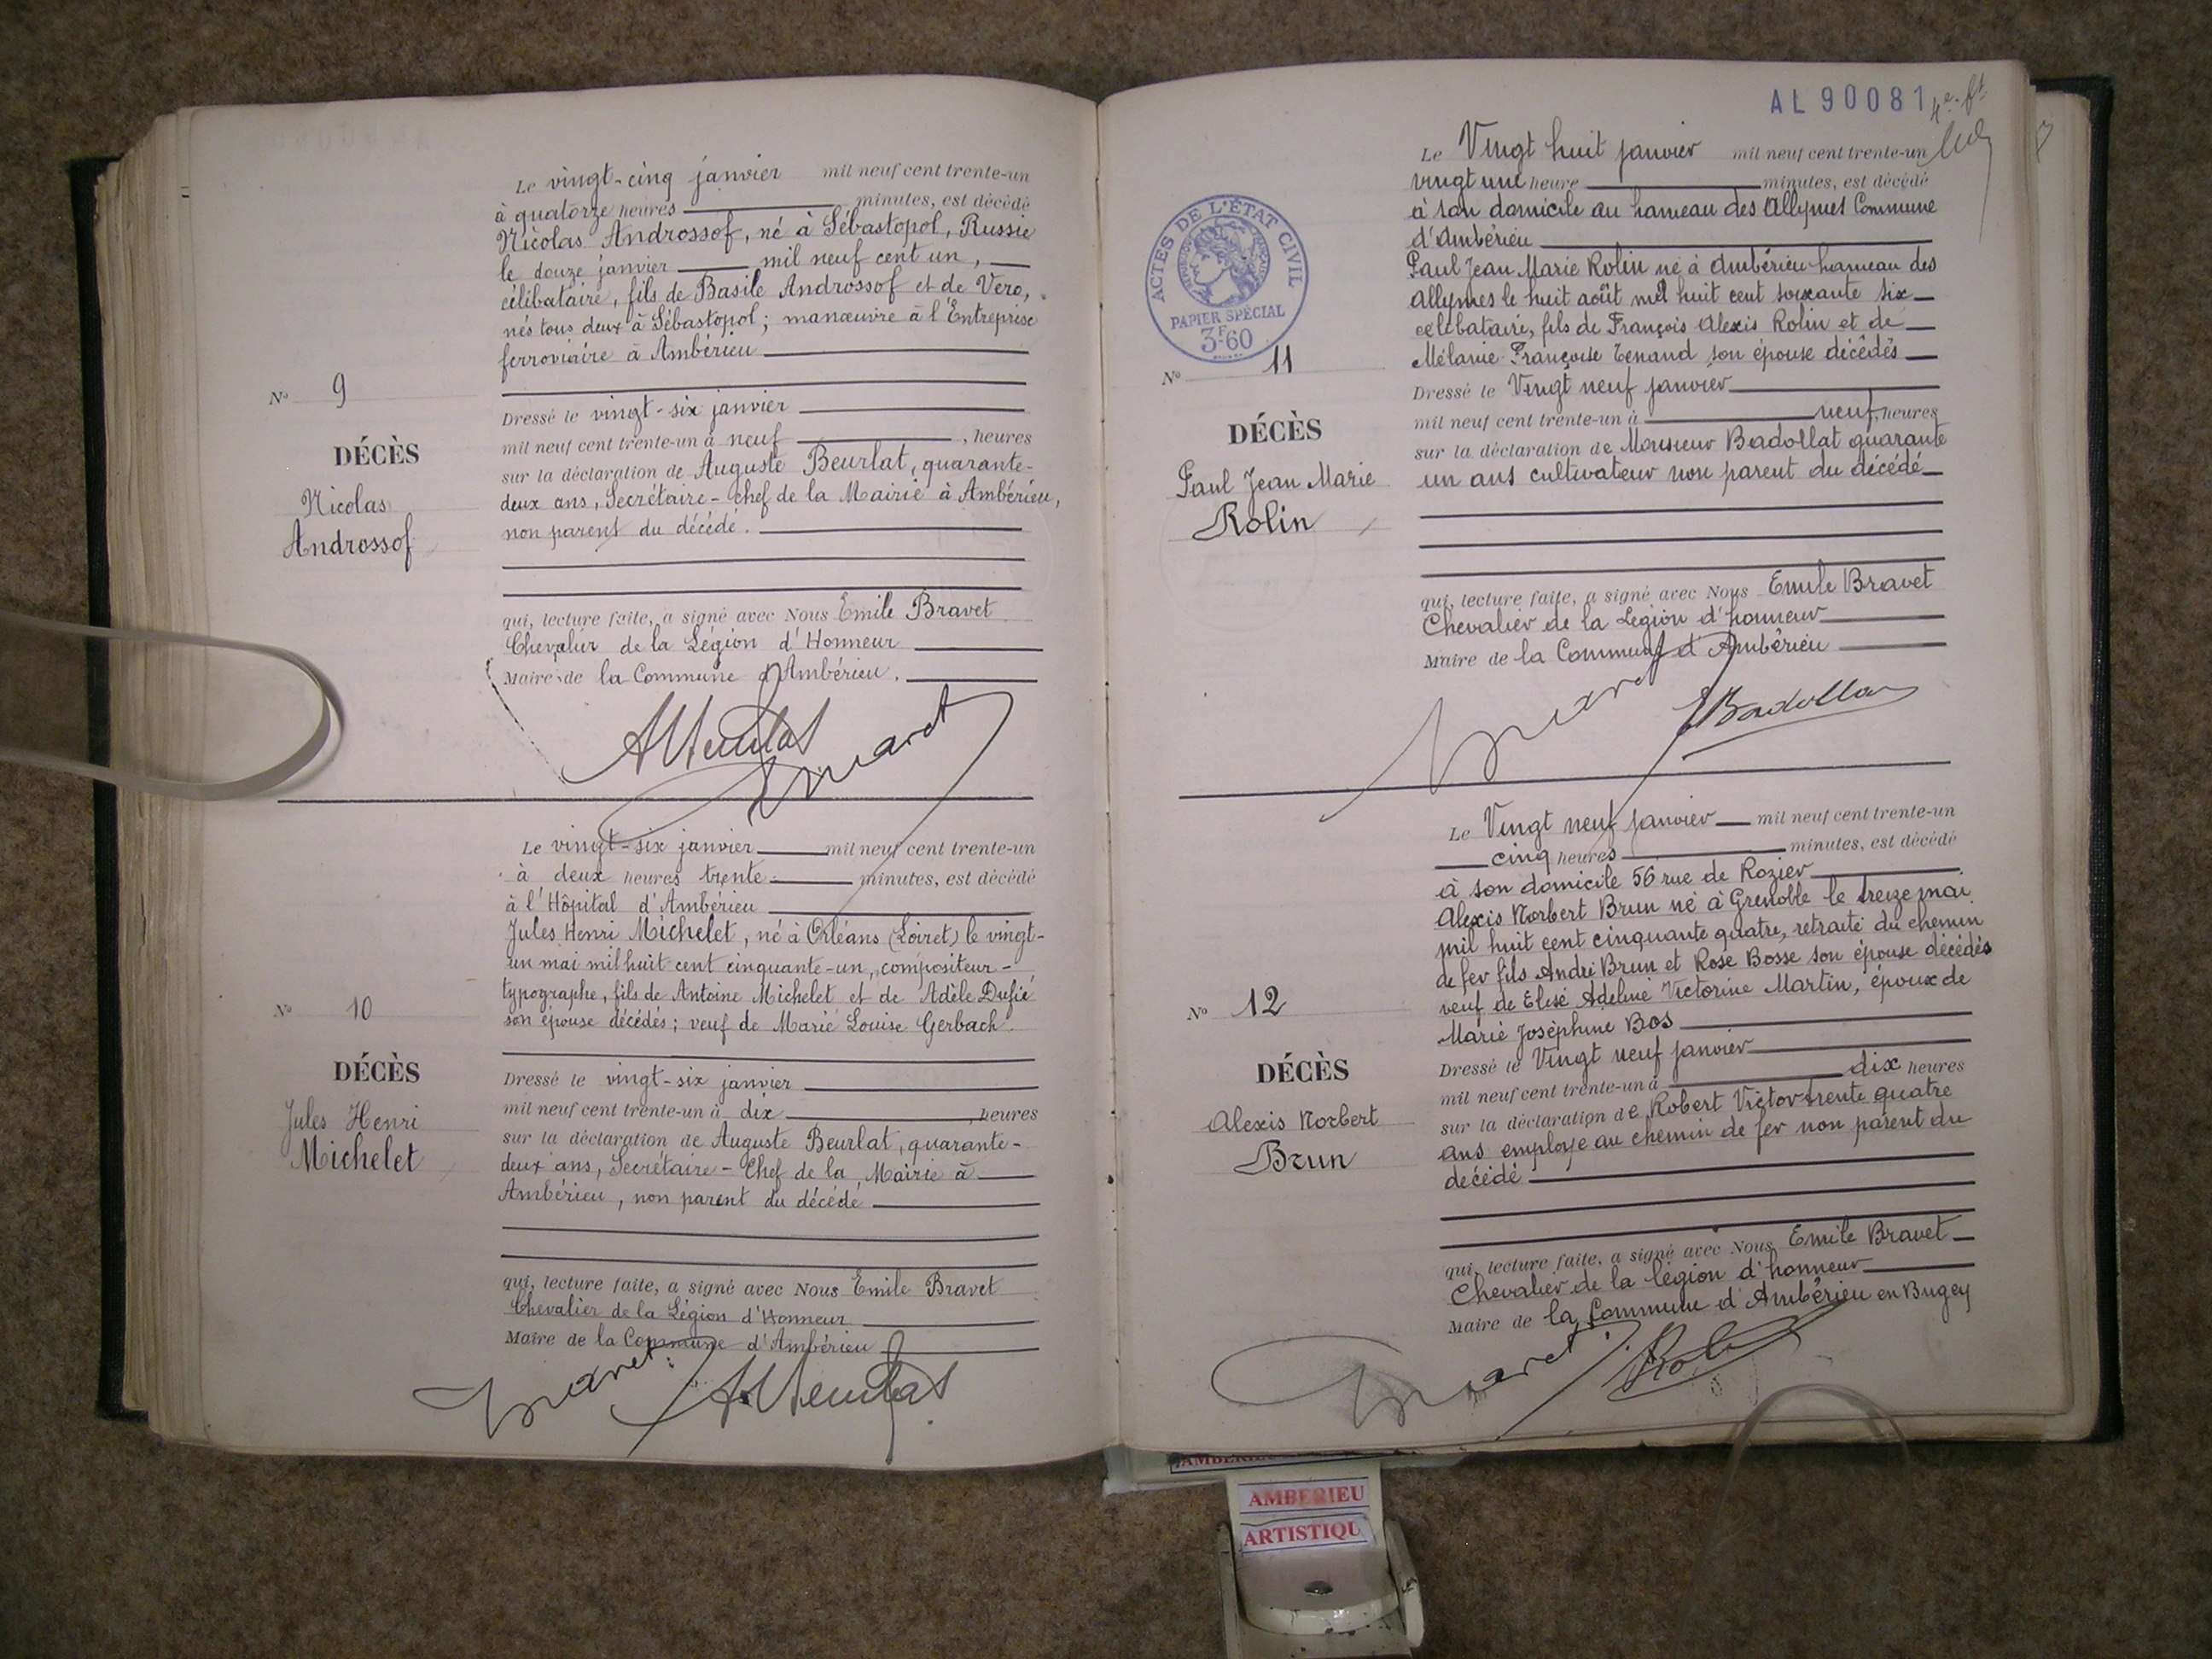 Le vingt-cinq janvier mil neuf cent trente-un
à quatorze heures minutes, est décédé
Nicolas Androssof, né à Sébastopol, Russie
le douze janvier mil neuf cent un,
célibataire, fils de Basile Androssof et de Vero,
nés tous deux à Sébastopol; manœuvre à l'Entreprise
ferroviaire à Ambérieu
No 9
DÉCÈS
Nicolas
Androssof
Dressé le vingt-six janvier
mil neuf cent trente-un à neuf, heures
sur la déclaration de Auguste Beurlat, quarante-
deux ans, Secrétaire-Chef de la Mairie à Ambérieu,
non parent du décédé.
qui, lecture faite, a signé avec Nous Emile Bravet
Chevalier de la Légion d'Honneur
Maire de la Commune d'Ambérieu.
Le vingt-six janvier mil neuf cent trente-un
à deux heures trente minutes, est décédé
à l'Hôpital d'Ambérieu
Jules Henri Michelet, né à Orléans (Loiret) le vingt-
un mai mil huit cent cinquante-un, compositeur-
typographe, fils de Antoine Michelet et de Adèle Dufié
son épouse décédés; veuf de Marie Louise Gerbach.
No 10
DÉCÈS
Jules Henri
Michelet
Dressé le vingt-six janvier
mil neuf cent trente-un à dix, heures
sur la déclaration de Auguste Beurlat, quarante-
deux ans, Secrétaire-Chef de la Mairie à
Ambérieu, non parent du décédé
qui, lecture faite, a signé avec Nous Emile Bravet
Chevalier de la Légion d'Honneur
Maire de la Commune d'Ambérieu
AL 90081
ACTES DE L'ÉTAT CIVIL
PAPIER SPÉCIAL
3F60
Le Vingt huit janvier mil neuf cent trente-un
vingt une heure minutes, est décédé
à son domicile au hameau des Allymes Commune
d'Ambérieu
Paul Jean Marie Rolin né à Ambérieu hameau des
Allymes le huit août mil huit cent soixante six
célibataire, fils de François Alexis Rolin et de
Mélanie Françoise Tenand son épouse décédés
No 11
DÉCÈS
Paul Jean Marie
Rolin
Dressé le Vingt neuf janvier
mil neuf cent trente-un à neuf, heures
sur la déclaration de Monsieur Badollat quarante
un ans cultivateur non parent du décédé
qui, lecture faite, a signé avec Nous Emile Bravet
Chevalier de la Légion d'honneur
Maire de la Commune d'Ambérieu
Le Vingt neuf janvier mil neuf cent trente-un
cinq heures minutes, est décédé
à son domicile 56 rue de Rozier
Alexis Norbert Brun né à Grenoble le treize mai
mil huit cent cinquante quatre, retraité du chemin
de fer fils André Brun et Rose Bosse son épouse décédés
veuf de Elisé Adeline Victorine Martin, époux de
Marie Joséphine Bos
No 12
DÉCÈS
Alexis Norbert
Brun
Dressé le Vingt neuf janvier
mil neuf cent trente-un à dix heures
sur la déclaration de Robert Victor trente quatre
ans employe au chemin de fer non parent du
décédé
qui, lecture faite, a signé avec Nous Emile Bravet
Chevalier de la légion d'honneur
Maire de la Commune d'Ambérieu en Bugey
AMBERIEU
ARTISTIQU